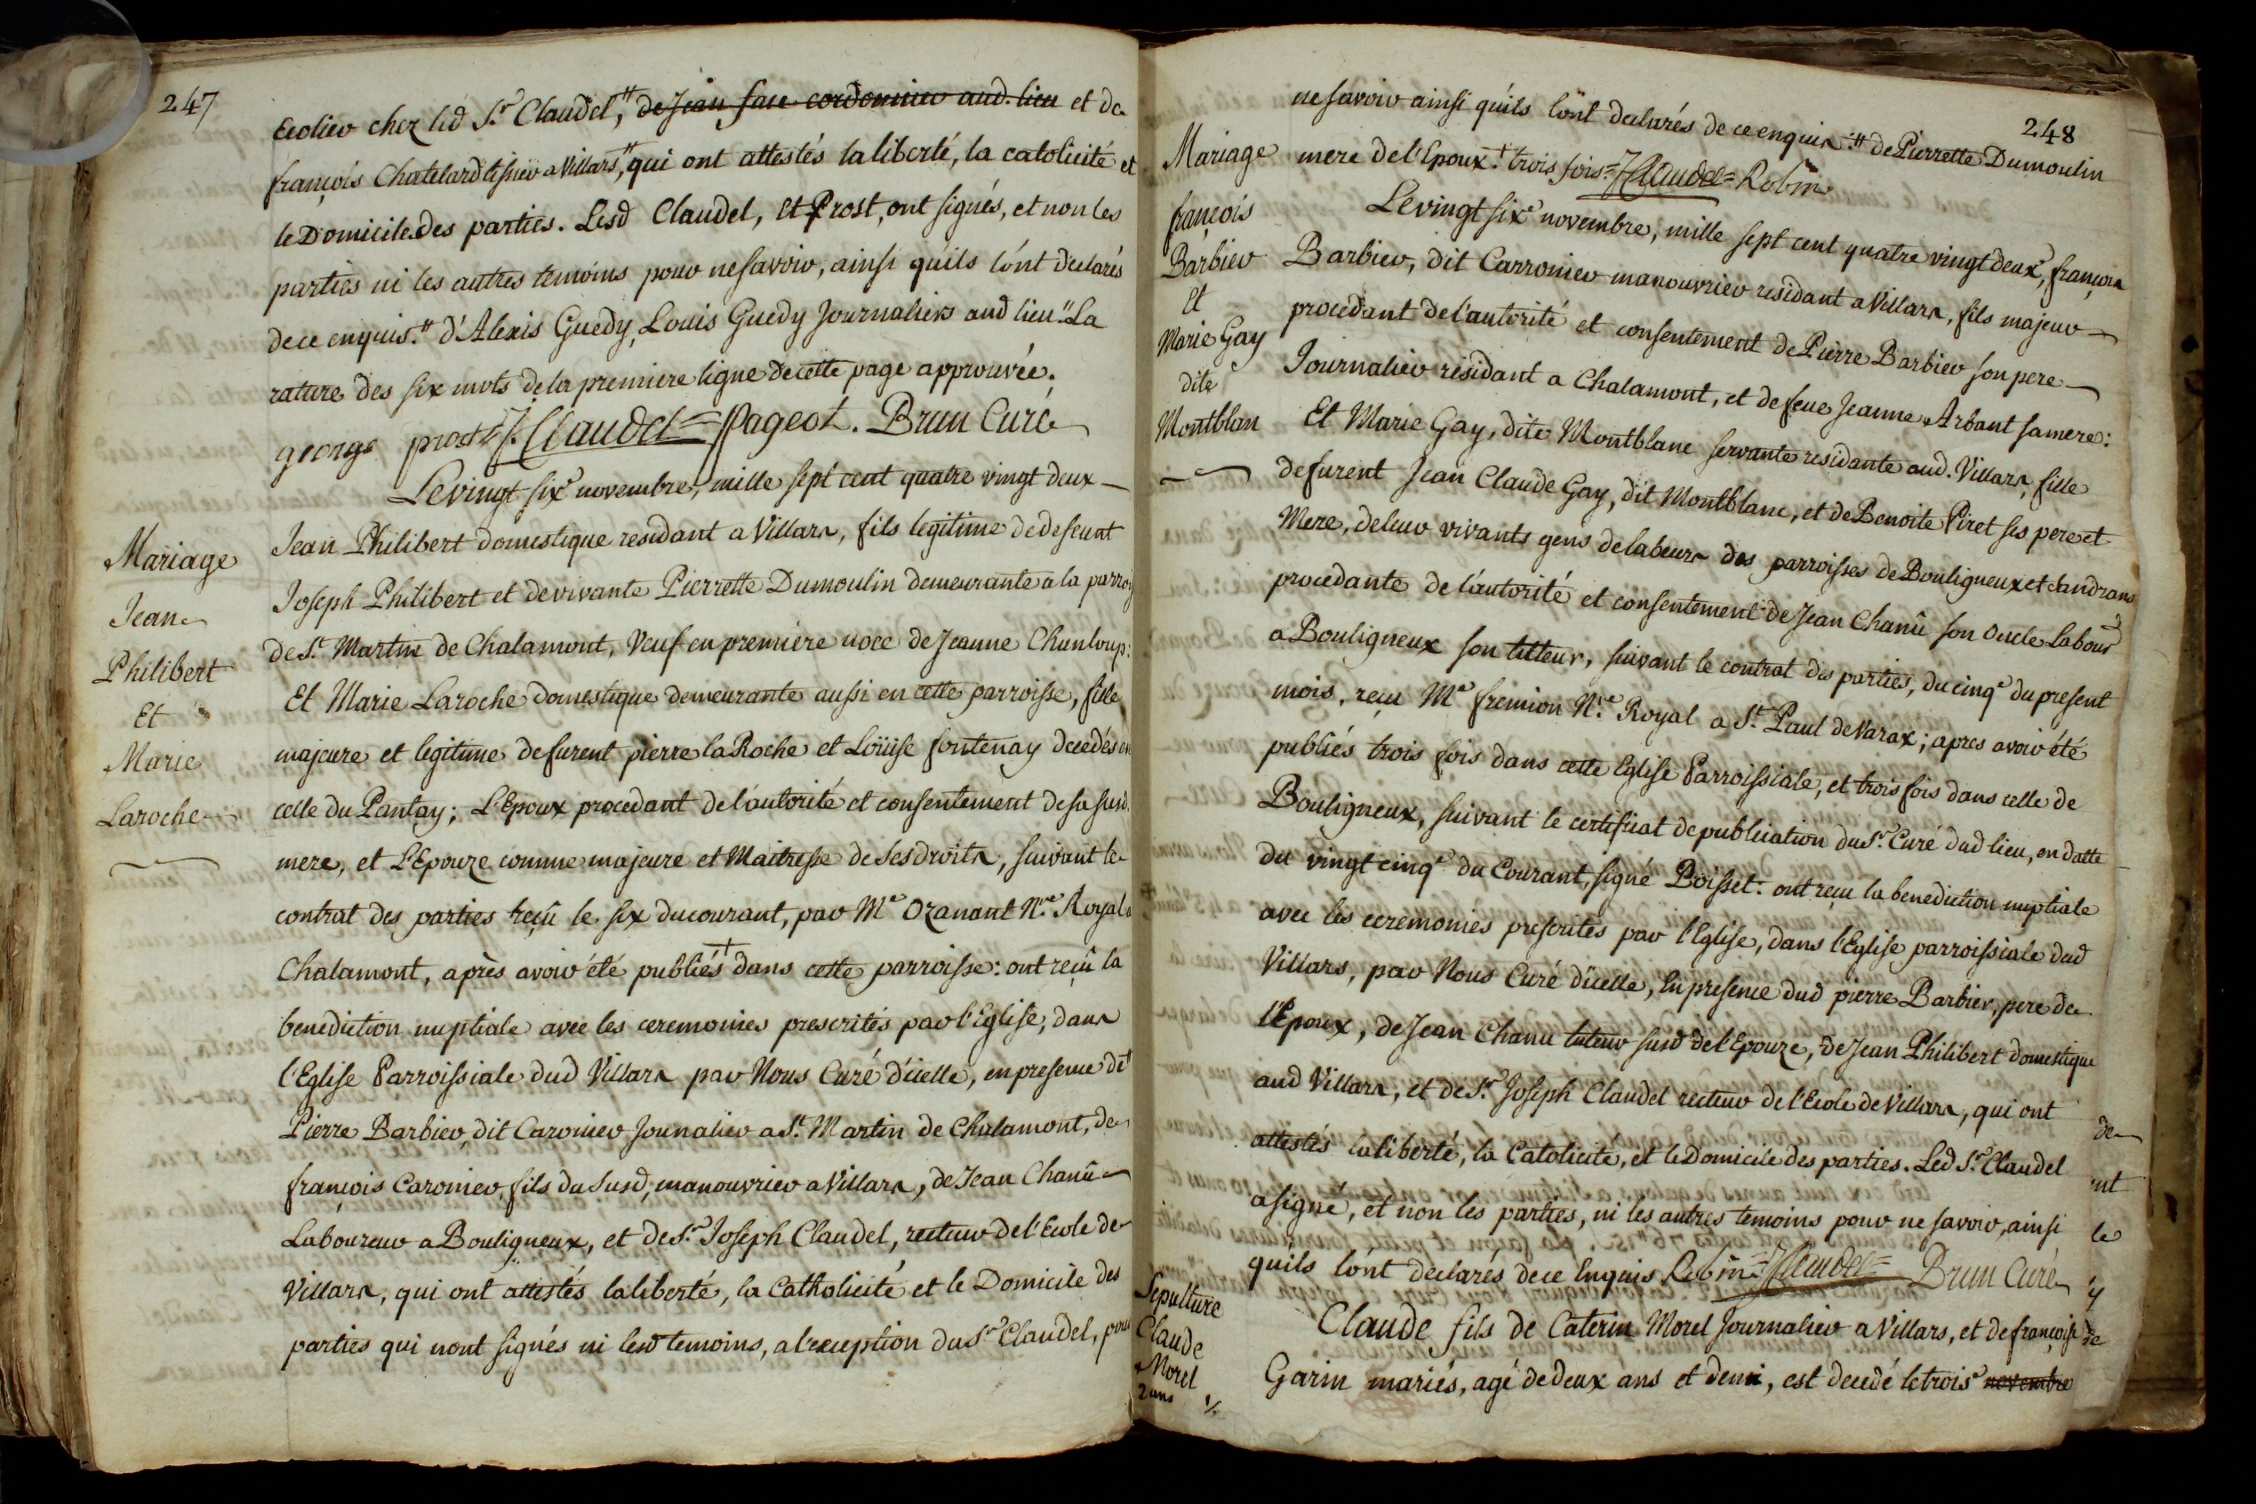 247
Ecolier chez led Sr. Claudel,# de Jean face cordonnier aud. lieu et de
françois Chatelard tissier a Villars,# qui ont attestés la liberté, la catolicité et
le Domicile des parties. Lesd Claudel, et Prost, ont signés, et non les
parties ni les autres temoins pour ne savoir, ainsi quils l'ont declarés
de ce enquis.# d'Alexis Guedy, Louis Guedy Journaliers aud lieu.# La
rature des six mots de la premiere ligne de cette page approuvée.
george prost = J. Claudel = Pageot. Brun Curé
Mariage
Jean
Philibert
Et
Marie
Laroche
Le vingt sixe novembre, mille sept cent quatre vingt deux
Jean Philibert domestique residant a Villars, fils legitime de defeunt
Joseph Philibert et de vivante Pierrette Dumoulin demeurante a la parrois
de St. Martin de Chalamont, Veuf en premiere noce de Jeanne Chanloup:
Et Marie Laroche domestique demeurante aussi en cette parroisse, fille
majeure et legitime defurent pierre la Roche et Loüise fontenay decedés en
celle du Pantay; L'Epoux procedant de l'autorité et consentement de sa susd.
mere, et L'Epouze comme majeure et Maitresse de ses droits, suivant le
contrat des parties reçû le six du courant, par Me Ozanant Nre. Royal a
Chalamont, après avoir été publiés + dans cette parroisse: ont reçû la
benediction nuptiale avec les ceremonies prescrités par l'Eglise, dans
l'Eglise Parroissiale dud Villars par Nous Curé d'icelle, en presence de#
Pierre Barbier, dit Caronier Jounalier a St. Martin de Chalamont, de
françois Caronier, fils du Susd, manouvrier a Villars, de Jean Chanû
Laboureur a Bouligneux, et de Sr. Joseph Claudel, recteur de l'Ecole de
Villars, qui ont attestés la liberté, la Catholicité et le Domicile des
parties qui nont signés ni lesd temoins, a l'exception du Sr Claudel, pour
248
ne savoir ainsi quils l'ont declarés de ce enquis.# de Pierrette Dumoulin
mere de l'Epoux.+ trois fois = J Claudel = Robin
Mariage
françois
Barbier
Et
Marie Gay
dite
Montblan
Le vingt sixe novembre, mille sept cent quatre vingt deux, françois
Barbier, dit Carronier manouvrier residant a Villars, fils majeur
procedant de l'autorité et consentement de Pierre Barbier son pere
Journalier residant a Chalamont, et de feue Jeanne Arbant sa mere:
Et Marie Gay, dite Montblanc servante residante aud. Villars, fille
defurent Jean Claude Gay, dit Montblanc, et de Benoite Piret ses pere et
Mere, de leur vivants gens de labeurs des parroisses de Bouligneux et Sandrans
procedante de l'autorité et consentement de Jean Chanû son oncle Labour
a Bouligneux son tutteur, suivant le contrat des parties, du cinqe du present
mois, reçu Me fremion Nre. Royal a St. Paul de Varax; apres avoir été
publiés trois fois dans cette Eglise Parroissiale, et trois fois dans celle de
Bouligneux, suivant le certificat de publication du Sr. Curé dud lieu, en datte
du vingt cinqe du Courant, signé Poisset: ont reçu la benediction nuptiale
avec les ceremonies prescrites par l'Eglise, dans l'Eglise parroissiale dud
Villars, par Nous Curé d'icelle, En presence dud pierre Barbier, pere de
l'Epoux, de Jean Chanu tuteur susd de l'Epouze, de Jean Philibert domestique
aud Villars, et de Sr. Joseph Claudel recteur de l'Ecole de Villars, qui ont
attestés la liberté, la Catolicité, et le Domicile des parties. Led Sr. Claudel
a signé, et non les parties, ni les autres temoins pour ne savoir, ainsi
quils l'ont declarés de ce Enquis Robin = J Claudel = Brun Curé
Sepulture
Claude
Morel
2 ans
Claude fils de Caterin Morel Journalier a Villars, et de françoise
Garin mariés, agé de deux ans et demi, est decedé le troise novembre
de
nt
le
y
de